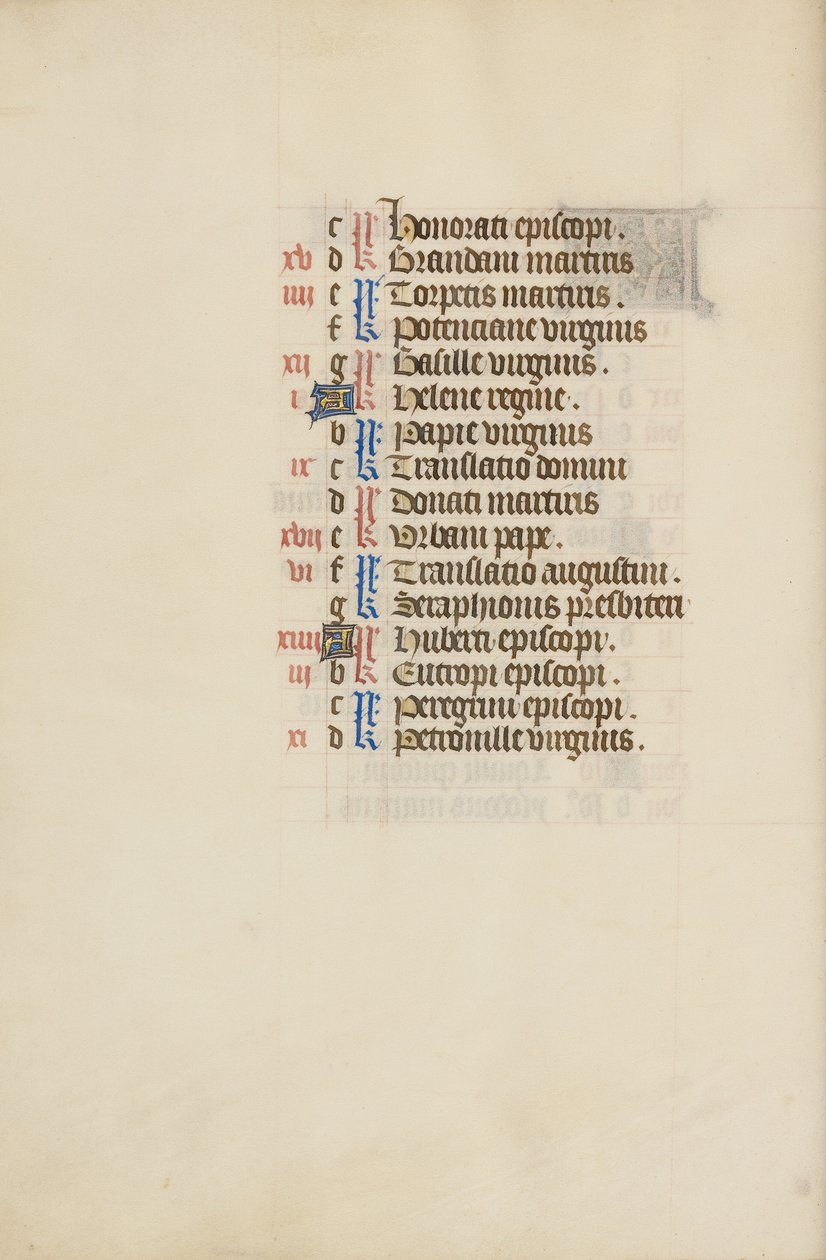 c kl Honorati episcopi.
xv d kl Grandani martiris
iiij e kl Torpetis martiris.
f kl Potenciane virginis
xij g kl Basille virginis.
i A kl Helene regine.
b kl Papie virginis
ix c kl Translatio domini
d kl Donati martiris
xvij e kl Urbani pape.
vi f kl Translatio augustini.
g kl Seraphionis presbiteri
xiiij A kl Huberti episcopi.
iij b kl Eutropi episcopi.
c kl Peregrini episcopi.
xi d kl Petronille virginis.